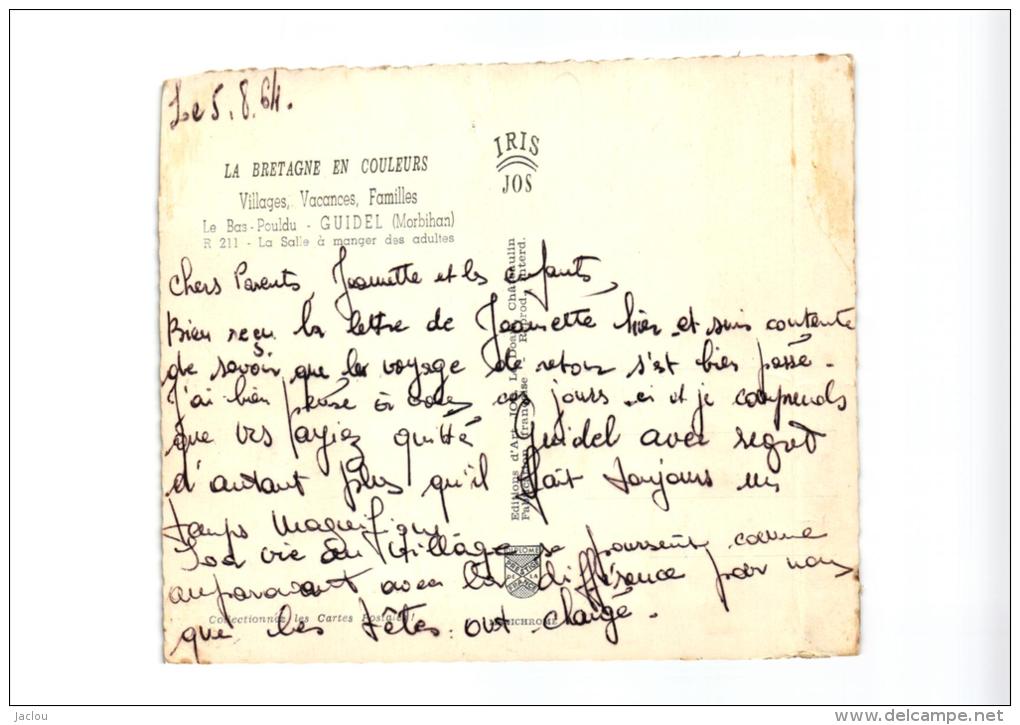 Le 5.8.64.
LA BRETAGNE EN COULEURS
Villages, Vacances, Familles
Le Bas-Pouldu - GUIDEL (Morbihan)
R 211 - La Salle à manger des adultes
IRIS
JOS
Chers Parents, Jeannette et les enfants,
Bien reçu la lettre de Jeannette hier et suis contente
de savoir que le voyage de retour s'est bien passé.
J'ai bien pensé à vous ces jours-ci et je comprends
que vs ayiez quitté Guidel avec regret
d'autant plus qu'il fait toujours un
temps magnifique
La vie du Village se poursuit comme
auparavant avec la différence par nous
que les têtes ont changé.
Editions d'Art JOS Le Doaré, Châteaulin
Fabrication française - Reprod. interd.
PRESTIGE
DE LA
FRANCE
Collectionnez les Cartes Postales!
jaclou
www.delcampe.net